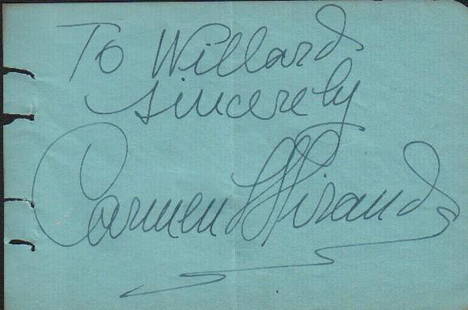 To Willard
sincerely
Carmen Miranda